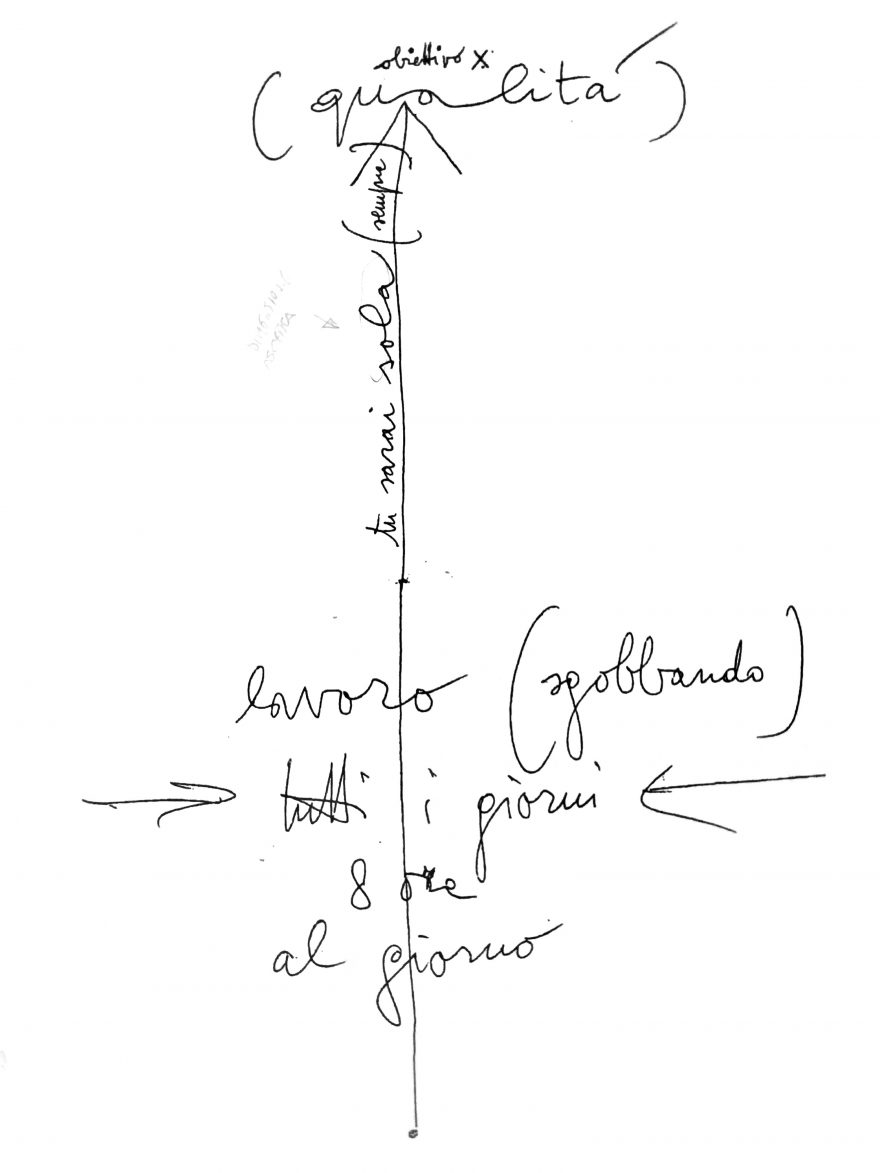 obiettivo X
(qualità)
tu sarai sola (sempre)
lavoro (sgobbando)
tutti i giorni
8 ore
al giorno